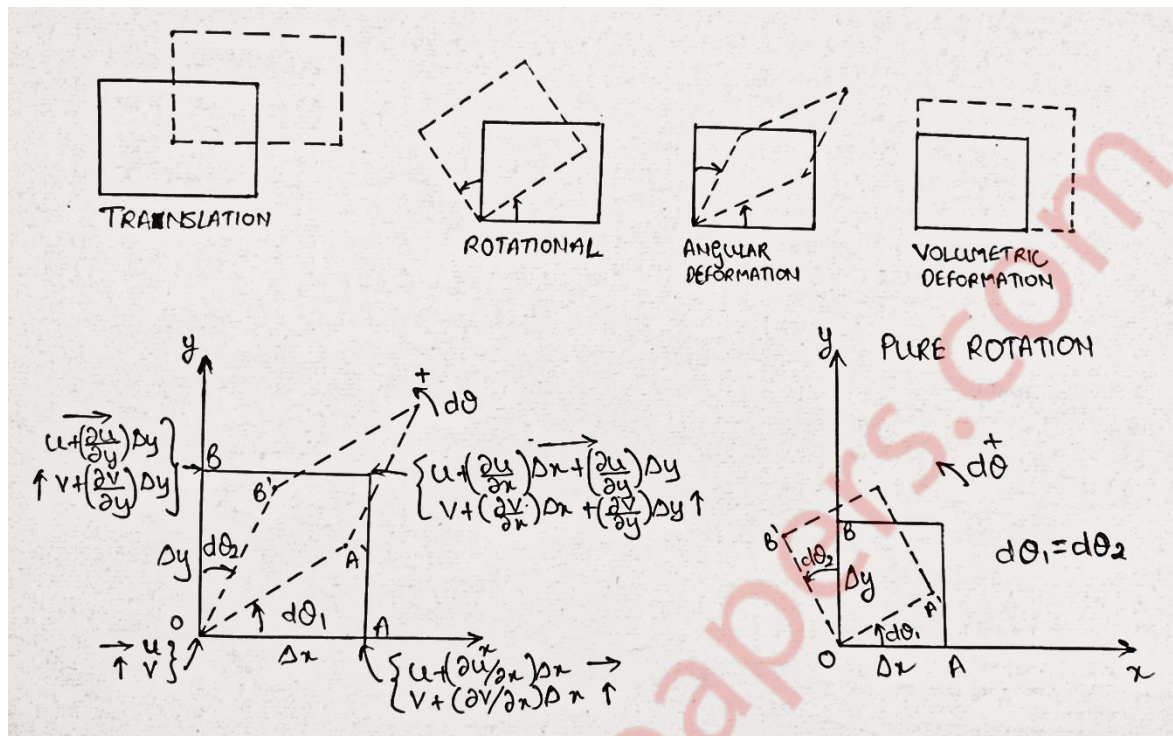 TRANSLATION
ROTATIONAL
ANGULAR
DEFORMATION
VOLUMETRIC
DEFORMATION
y
+
dθ
u+(∂u/∂y)Δy
v+(∂v/∂y)Δy
B
B'
u+(∂u/∂x)Δx+(∂u/∂y)Δy
v+(∂v/∂x)Δx+(∂v/∂y)Δy
Δy
dθ2
A'
dθ1
O
A
x
Δx
u
v
u+(∂u/∂x)Δx
v+(∂v/∂x)Δx
y
PURE ROTATION
+
dθ
B'
B
dθ2
Δy
dθ1=dθ2
A'
dθ1
O
Δx
A
x
papers.com